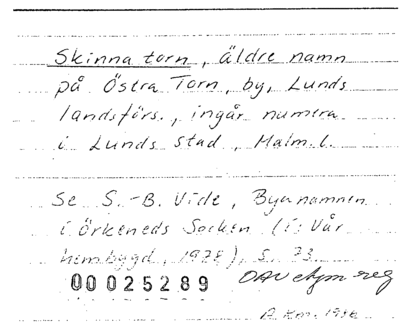 Skinna torn, äldre namn
på Östra Torn, by, Lunds
landsförs., ingår numera
i Lunds stad, Malm. l.
Se S.-B. Vide, Bynamnen
i Örkeneds Socken (i: Vår
hembygd, 1978), s. 73
00025289 OAU etym reg
A. Km. 1986